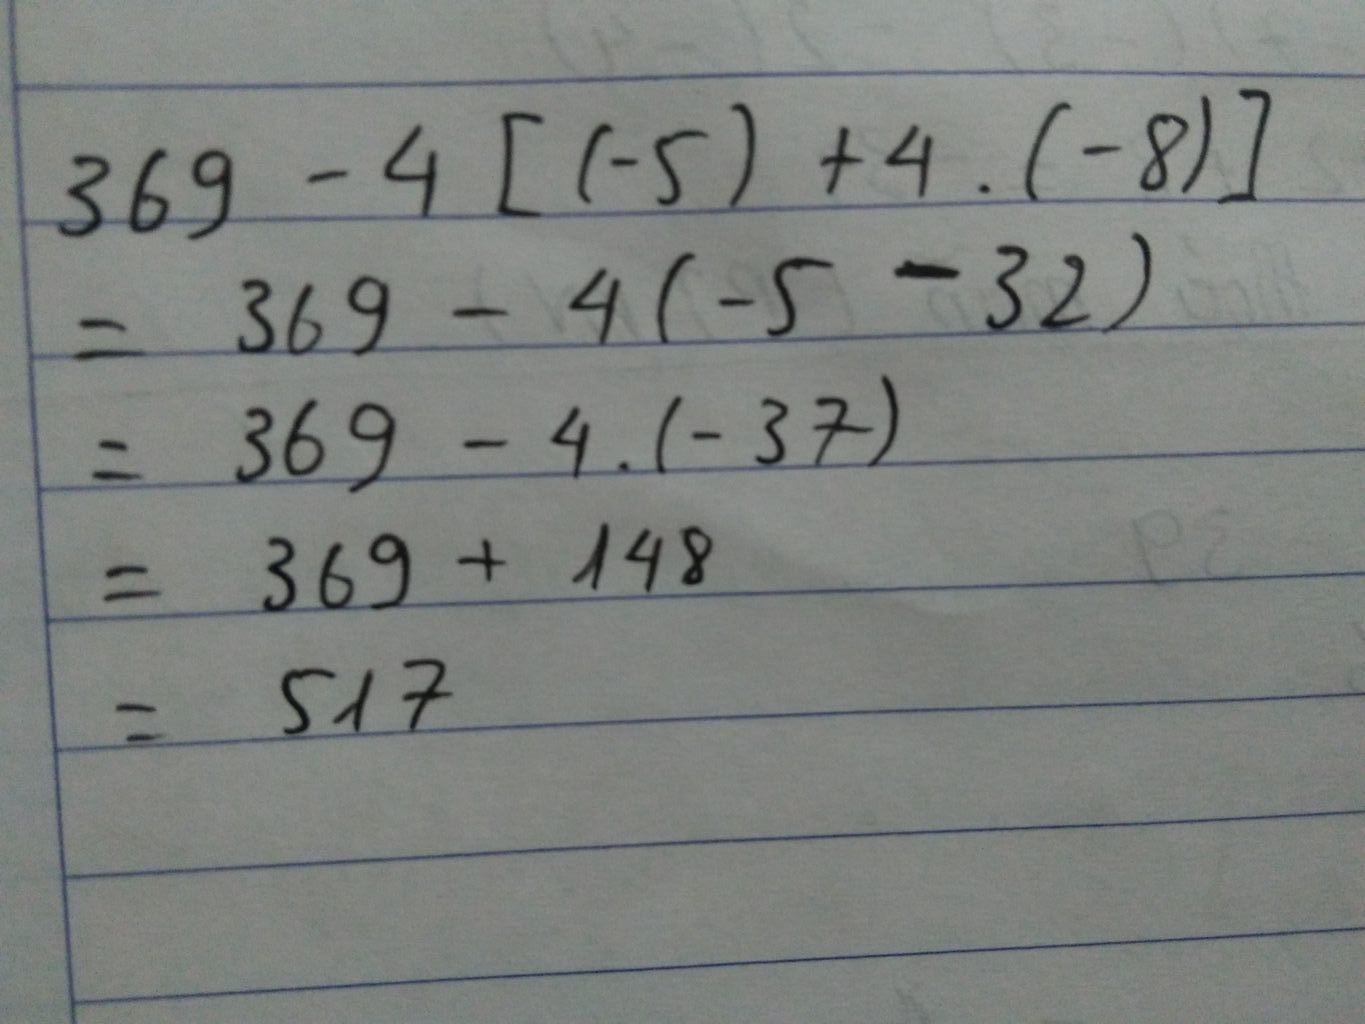 369 - 4 [(-5) + 4 . (-8)]
= 369 - 4(-5 - 32)
= 369 - 4.(-37)
= 369 + 148
= 517